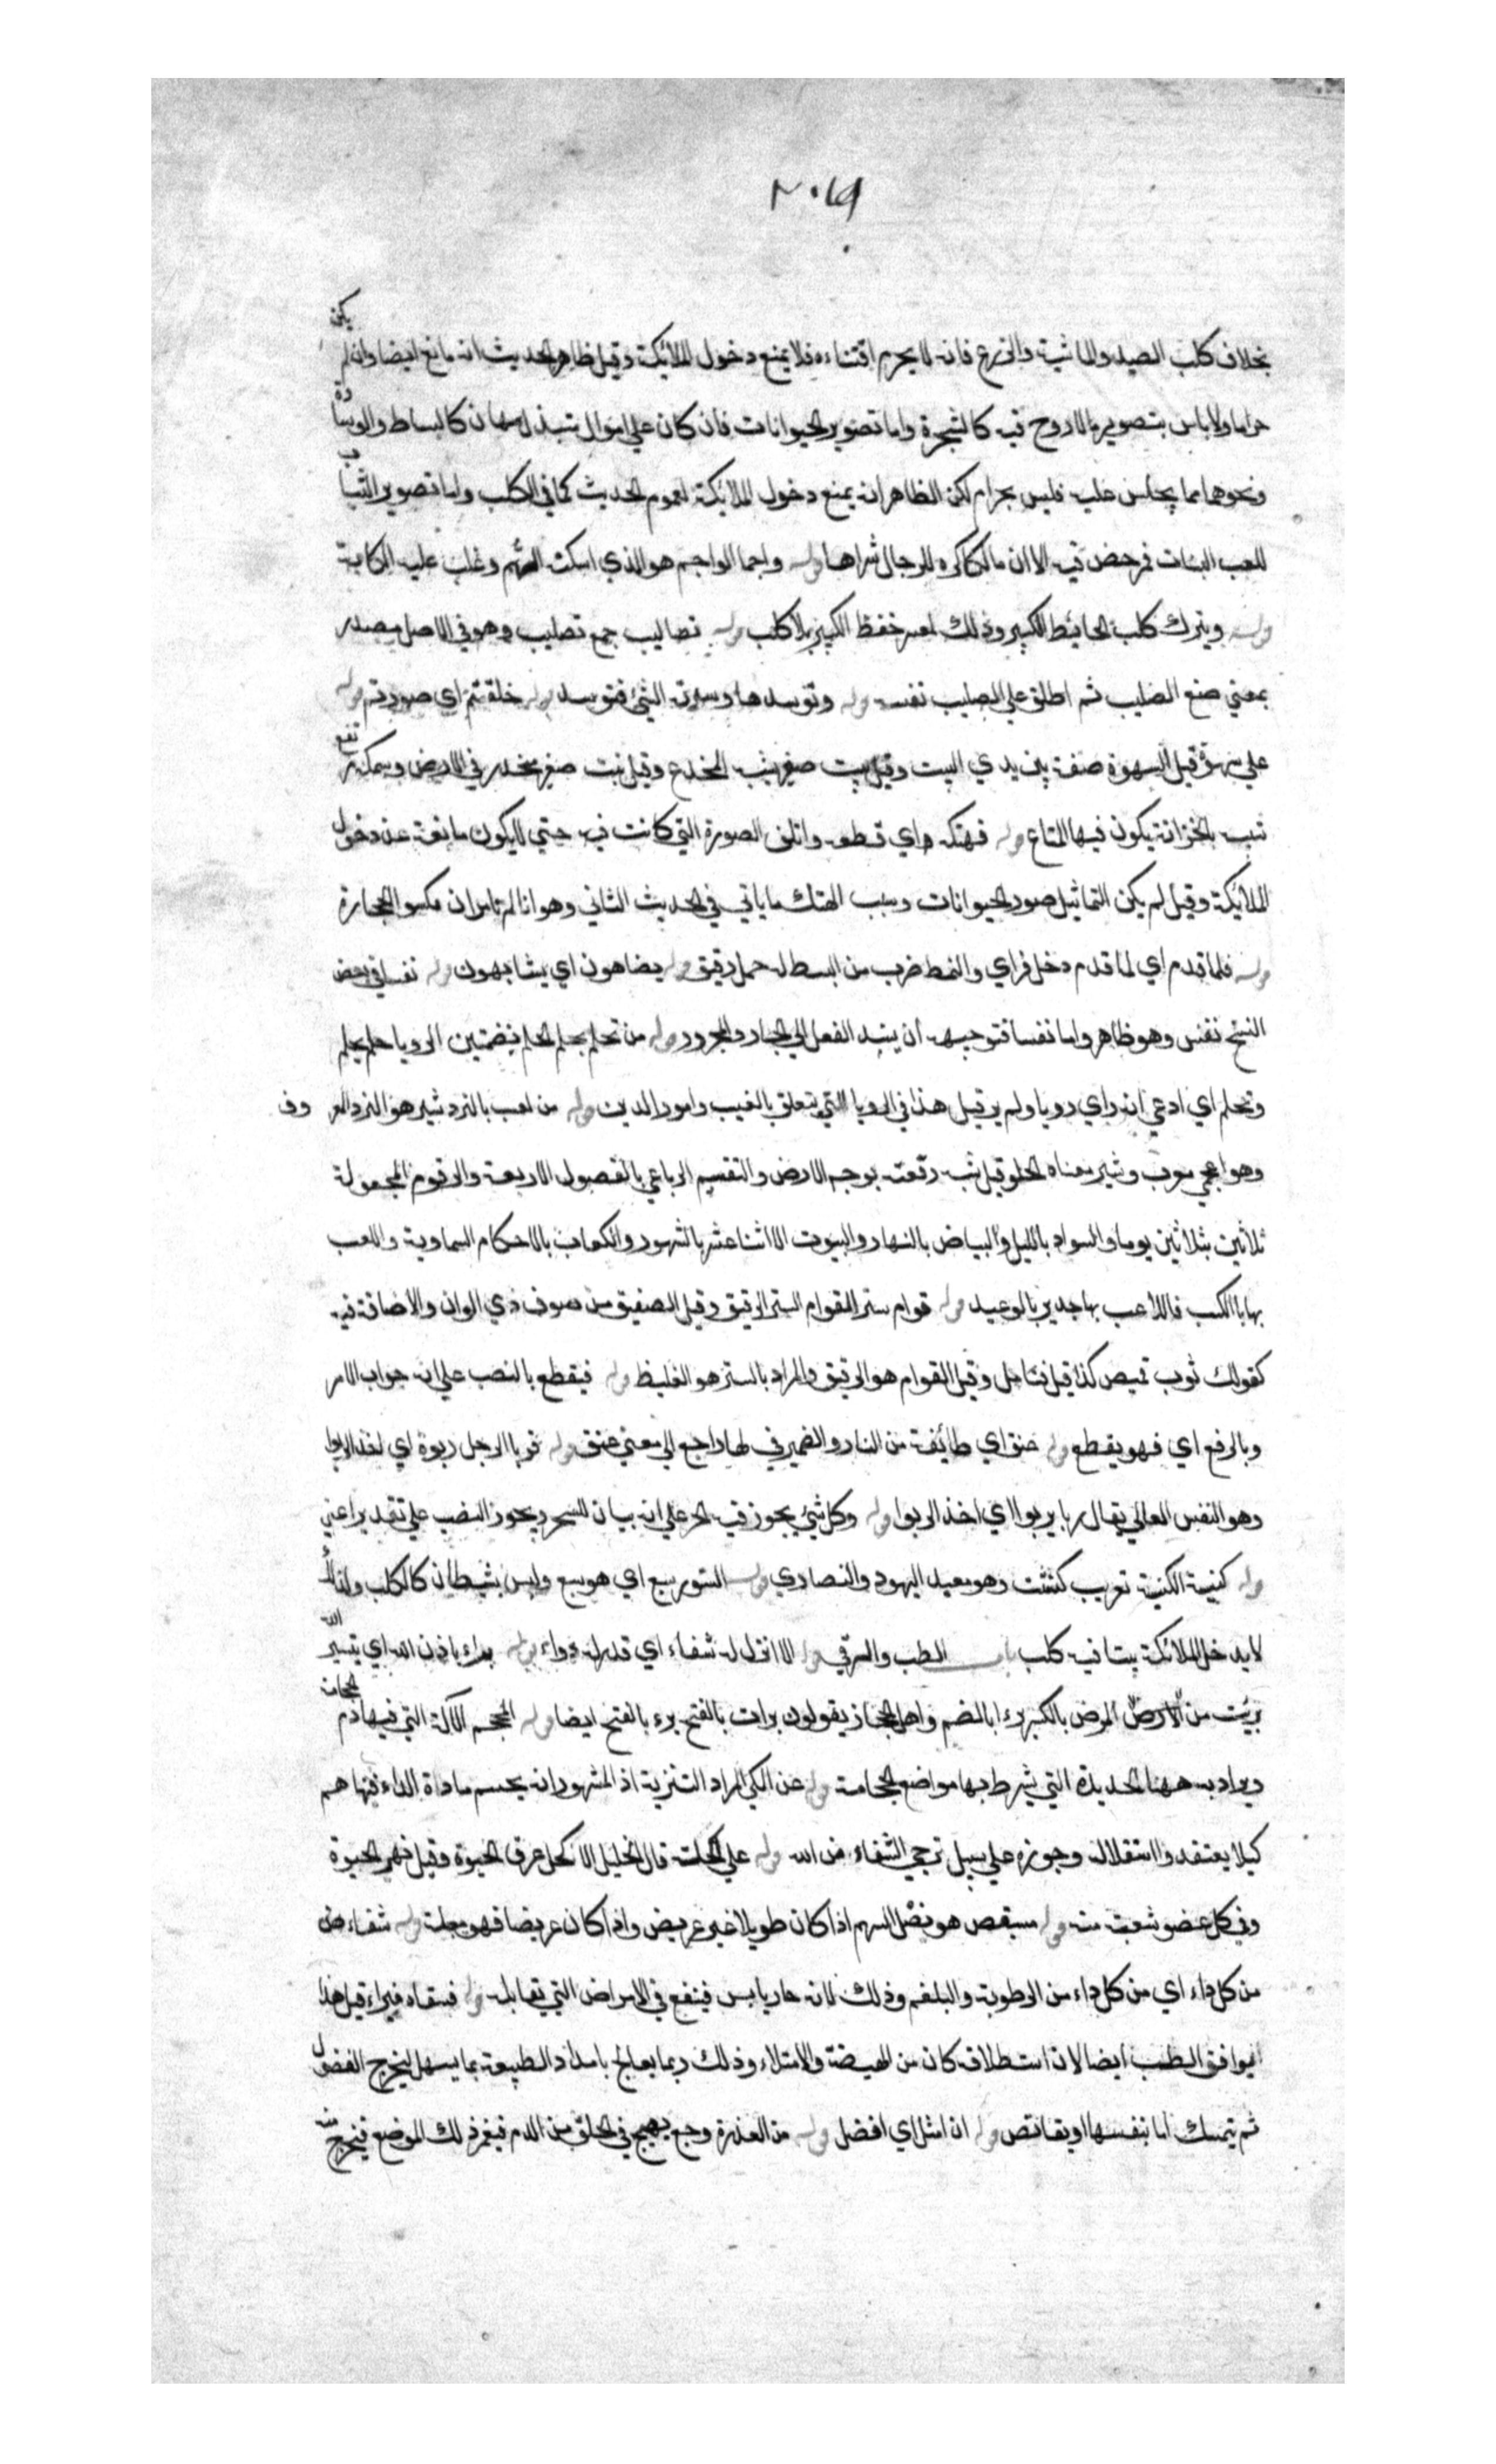 ٢٠٩
بخلاف كلب الصيد والماشية والزرع فانه لا يحرم اقتناءه فلا يمنع دخول الملائكة وقيل ظاهر الحديث انه مانع ايضا وان لم يكن
حراما ولا باس بتصوير ما لا روح فيه كالشجرة واما تصوير الحيوانات فان كان علي اموال تبتذل وتهان كالبساط والوسادة
ونحوهما مما يجلس عليه فليس بحرام لكن الظاهر انه يمنع دخول الملائكة لعموم الحديث كما في الكلب واما تصوير الثياب
للعب البنات فمرخص فيه الا ان مالكا كره للرجال شراها قوله واجما الواجم هو الذي اسكته الهم وغلب عليه الكابة
قوله ويترك كلب الحائط الكبير وذلك لعسر حفظ الكبير بلا كلب قوله تصاليب جمع تصليب وهو في الاصل مصدر
بمعني صنع الصليب ثم اطلق علي الصليب نفسه قوله وتوسدها وسدته الشئ فتوسد قوله خلقتم اي صورتم قوله
علي سهوة قيل السهوة صفة بين يدي البيت وقيل بيت صغير يشبه المخدع وقيل بيت صغير منحدر في الارض وسمكه مرتفع
شبيه بالخزانة يكون فيها المتاع قوله فهتكه اي قطعه واتلف الصورة التي كانت فيه حتي لا يكون مانعة عن دخول
الملائكة وقيل لم يكن التماثيل صور الحيوانات وسبب الهتك ما ياتي في الحديث الثاني وهو انا لم نامر ان نكسو الحجارة
قوله فلما قدم اي لما قدم دخل فراي والنمط ضرب من البسط له خمل رقيق قوله يضاهون اي يشابهون قوله نفسا في بعض
النسخ نفس وهو ظاهر واما نفسا فتوجيهه ان يسند الفعل الي الجار والمجرور قوله من تحلم بحلم الحلم بضمتين الرويا حلم يحلم
وتحلم اي ادعي انه راي رويا ولم ير قيل هذا في الرويا التي يتعلق بالغيب وامور الدين قوله من لعب بالنرد شير هو النرد المعروف
وهو اعجمي معرب وشير معناه الحلو قيل شبه رقعته بوجه الارض والتقسيم الرباعي بالفصول الاربعة والرقوم المجعولة
ثلاثين بثلاثين يوما والسواد بالليل والبياض بالنهار والبيوت الاثنا عشر بالشهور والكعاب بالاحكام السماوية واللعب
بها بالكسب فاللاعب بها جدير بالوعيد قوله قوام ستر القوام الستر الرقيق وقيل الصفيق من صوف ذي الوان والاضافة فيه
كقولك ثوب قميص كذا قيل فتامل وقيل القوام هو الرقيق والمراد بالستر هو الغليظ قوله فيقطع بالنصب علي انه جواب الامر
وبالرفع اي فهو يقطع قوله عنق اي طائفة من النار والضمير في لها راجع الي معني عنق قوله فربا الرجل ربوة اي اخذ الربوا
وهو النفس العالي يقال ربا يربوا اي اخذ الربوا قوله وكل شئ يجوز فيه الجر علي انه بيان للسحر ويجوز النصب علي تقدير اعني
قوله كنيسة الكنيسة تعريب كنشت وهو معبد اليهود والنصاري قوله السنور سبع اي هو سبع وليس بشيطان كالكلب ولذلك
لا يدخل الملائكة بيتا فيه كلب باب الطب والرقي قوله الا انزل له شفاء اي قدر له دواء قوله براء باذن الله اي بتيسير الله
برئت من الارض المرض بالكسر برءا بالضم واهل الحجاز يقولون برات بالفتح برء بالفتح ايضا قوله المحجم الآلة التي فيها دم الحجامة
ويراد به ههنا الحديدة التي يشرط بها مواضع الحجامة قوله عن الكي المراد التنزيه اذ المشهور انه يحسم مادة الداء فنهاهم
كيلا يعتقدوا استقلاله وجوزه علي سبيل ترجي الشفاء من الله قوله علي اكحله قال الخليل الاكحل عرق الحيوة وقيل نهر الحيوة
وفي كل عضو شعبة منه قوله بمشقص هو نصل السهم اذا كان طويلا غير عريض واذا كان عريضا فهو معبلة قوله شفاء من
من كل داء اي من كل داء من الرطوبة والبلغم وذلك لانه حار يابس فينفع في الامراض التي تقابله قوله فسقاه فبراء قيل هذا
يوافق الطب ايضا لان استطلاقه كان من الهيضة والامتلاء وذلك ربما يعالج بامداد الطبيعة بما يسهل ليخرج الفضول
ثم يتمسك اما بنفسها او بقابض قوله ان امثل اي افضل قوله من العذرة وجع يهيج في الحلق من الدم فيغمز ذلك الموضع فيخرج منه